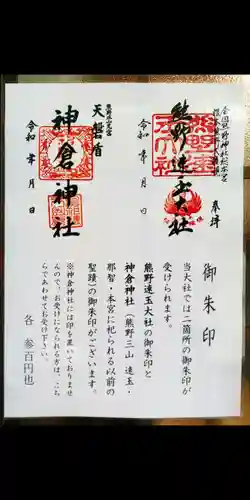 全国熊野神社総本宮
奉拝
熊野速玉大社
令和 年 月 日
熊野三山元宮
天磐盾
神倉神社
令和 年 月 日
御朱印
当大社では二箇所の御朱印が
受けられます。
熊野速玉大社の御朱印と
神倉神社（熊野三山 速玉・
那智・本宮に祀られる以前の
聖蹟）の御朱印がございます。
※神倉神社には印を置いておりませ
んので、お受けになられる方は、こち
らであわせてお受け下さい。
各 参百円也